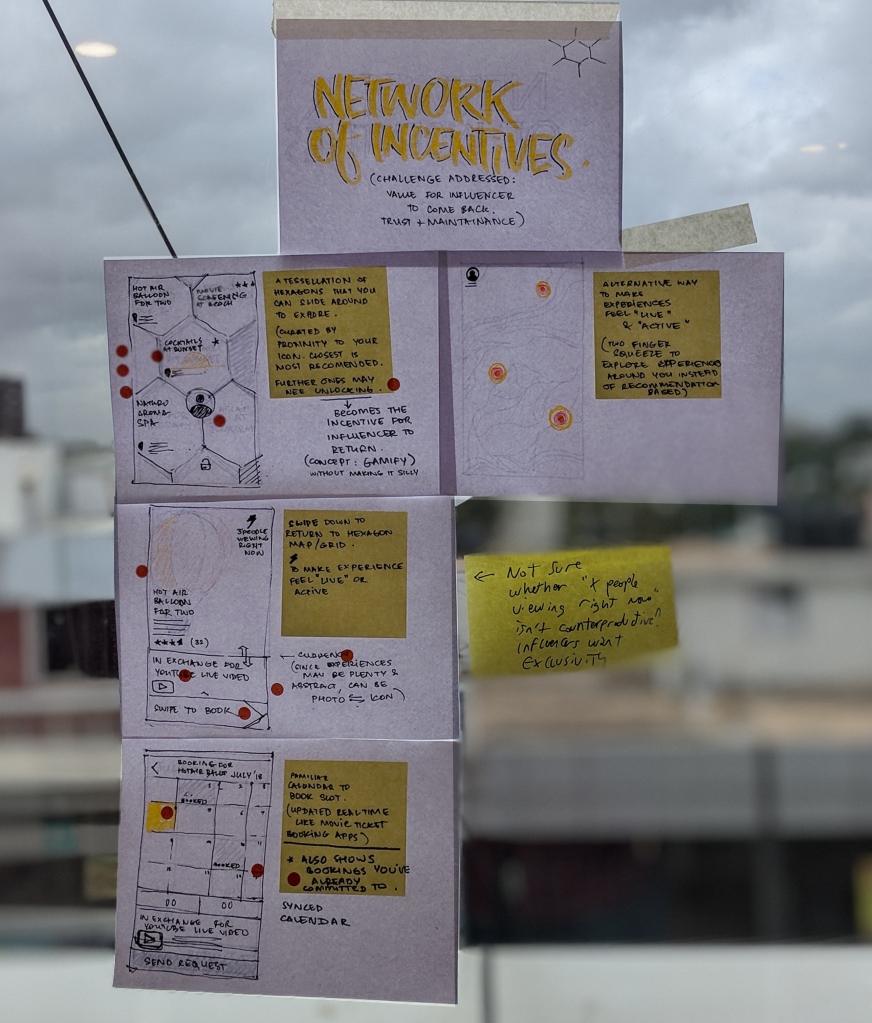 NETWORK
OF INCENTIVES.
(CHALLENGE ADDRESSED:
VALUE FOR INFLUENCER
TO COME BACK.
TRUST + MAINTAINANCE)
HOT AIR
BALLOON
FOR TWO
MOVIE
SCREENING
AT BEACH
COCKTAILS
AT SUNSET
NATURO
AROMA
SPA
A TESSELLATION OF
HEXAGONS THAT YOU
CAN SLIDE AROUND
TO EXPLORE.
(CURATED BY
PROXIMITY TO YOUR
ICON. CLOSEST IS
MOST RECOMENDED.
FURTHER ONES MAY
NEED UNLOCKING.
BECOMES THE
INCENTIVE FOR
INFLUENCER TO
RETURN.
(CONCEPT: GAMIFY)
WITHOUT MAKING IT SILLY
ALTERNATIVE WAY
TO MAKE
EXPERIENCES
FEEL "LIVE"
& "ACTIVE"
(TWO FINGER
SQUEEZE TO
EXPLORE EXPERIENCES
AROUND YOU INSTEAD
OF RECOMMENDATION
BASED)
3 PEOPLE
VIEWING
RIGHT
NOW
HOT AIR
BALLOON
FOR TWO
(32)
IN EXCHANGE FOR
YOUTUBE LIVE VIDEO
SWIPE TO BOOK
SWIPE DOWN TO
RETURN TO HEXAGON
MAP/GRID.
TO MAKE EXPERIENCE
FEEL "LIVE" OR
ACTIVE
(SINCE EXPERIENCES
MAY BE PLENTY &
ABSTRACT, CAN BE
PHOTO ⇆ ICON)
← Not sure
whether "x people
viewing right now"
isn't counterproductive?
Influencers want
exclusivity
< BOOKING FOR
HOT AIR BALLO JULY '18
BOOKED
BOOKED
IN EXCHANGE FOR
YOUTUBE LIVE VIDEO
SEND REQUEST
FAMILIAR
CALENDAR TO
BOOK SLOT.
(UPDATED REALTIME
LIKE MOVIE TICKET
BOOKING APPS)
* ALSO SHOWS
BOOKINGS YOU'VE
ALREADY
COMMITTED TO.
SYNCED
CALENDAR